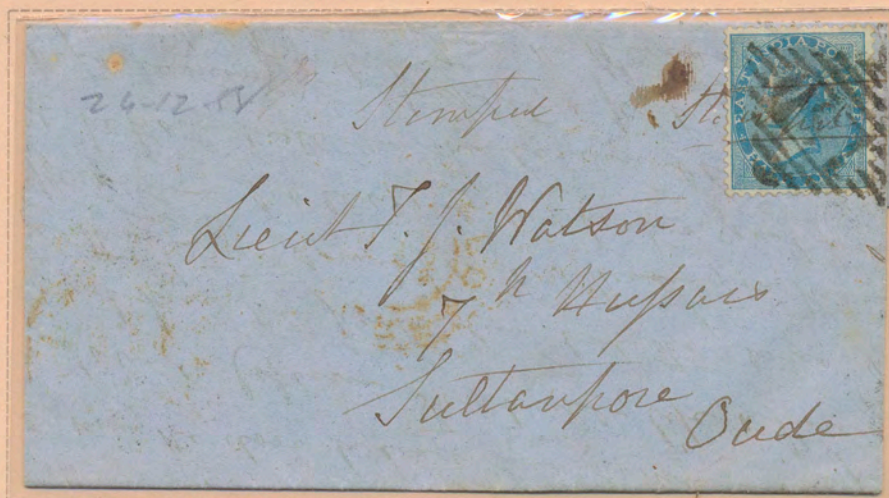 24-12-58
Stamped
EAST INDIA PO
Lieut T. J. Watson
7th Hussars
Sultanpore
Oude